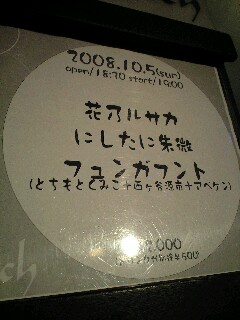 2008.10.5(sun)
open/18:30 start/19:00
花乃ルサカ
にしたに朱微
フュンガフント
(とちもとぐみこ+西ヶ谷源市+アベケン)
000
500
ch